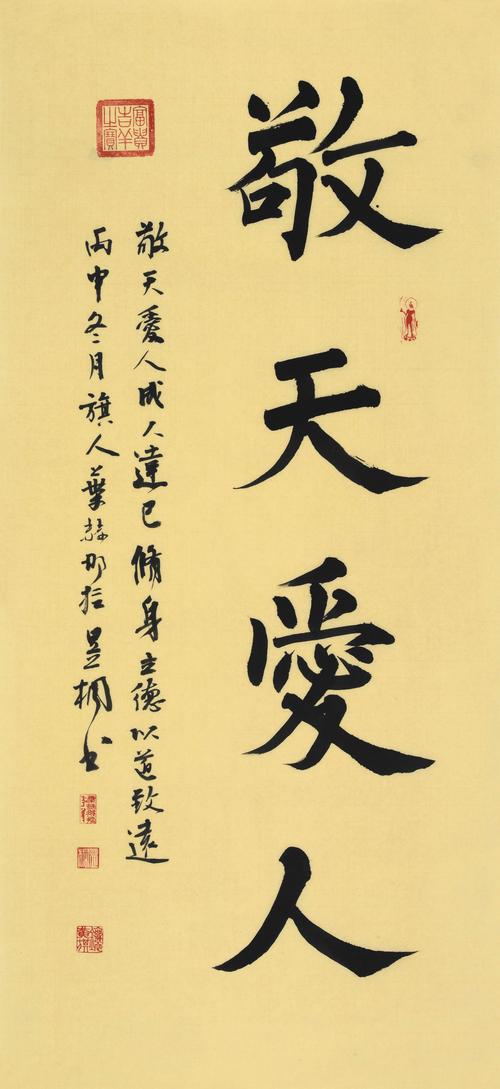 敬天愛人
敬天愛人成人達己脩身立德以道致遠
丙申冬月旗人葉赫那拉昱桐書
富貴吉羊之寶